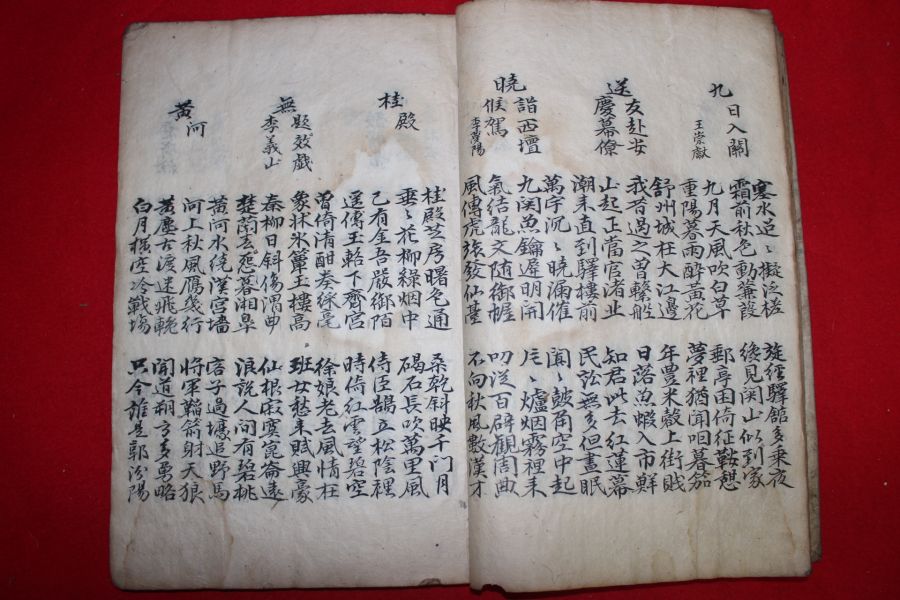 九日入關
王崇獻
寒水迢〻擬泛槎
霜前秋色動蒹葭
九月天風吹白草
重陽暮雨醉黃花
旋經驛館多乘夜
纔見関山似到家
郵亭困倚征鞍憩
夢裡猶聞咽暮笳
送友赴安慶幕僚
舒州城枕大江邊
我昔過之曾繫船
山起正當官渚北
潮来直到驛樓前
年豊米穀上街賤
日落魚蝦入市鮮
知君此去紅蓮幕
民訟無多但晝眠
曉詣西壇候駕
萬宇沉〻曉漏催
九関魚鑰遲明開
氣結龍文随御幄
風傳虎旅發仙臺
闐〻皷角空中起
片〻爐烟霧裡来
叨從百辟觀周典
不向秋風數漢才
桂殿
桂殿芝房曙色通
垂〻花柳綠烟中
已有金吾嚴御陌
遥傳玉輅下齋宮
桑乾斜映千门月
碣石長吹萬里風
侍臣鵠立松陰裡
時倚紅雲望碧空
無題效戯李義山
曾倚清酣奏綵毫
象牀氷簟玉樓高
秦柳日斜傷渭曲
楚蘭惹暮湘皋
徐娘老去風情在
班女愁来賦興豪
仙根寂寞崑崙遠
浪說人间有碧桃
黃河
黃河水繞漢宮墻
河上秋風鴈幾行
黃塵古渡迷飛輓
白月横空冷戰場
客子過壕追野馬
將軍韜箭射天狼
聞道朔方多勇略
只今誰是郭汾陽